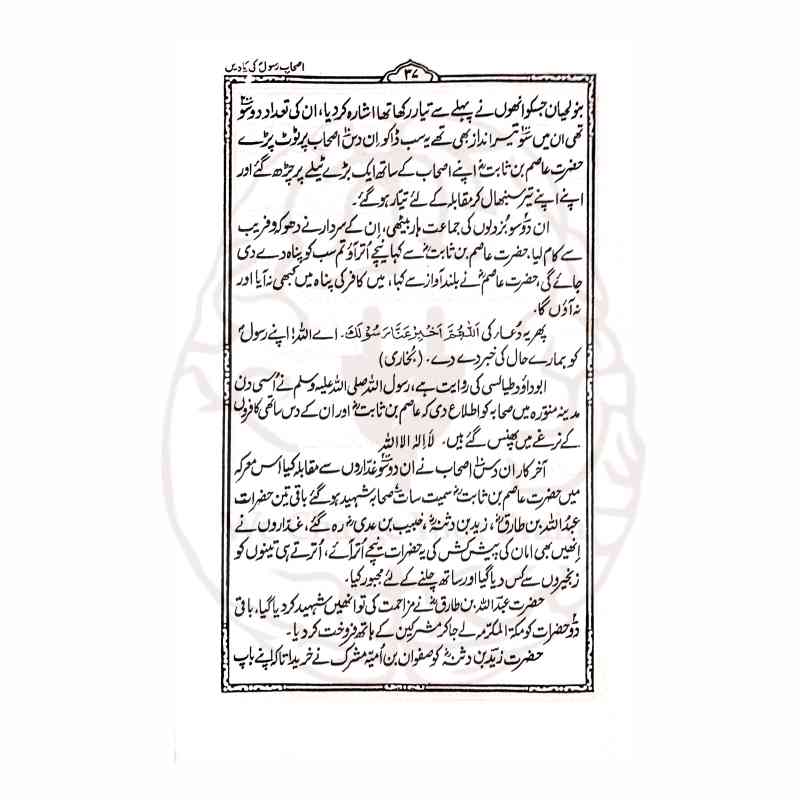 اصحابِ رسولؐ کی یادیں
۳۷
بنو لحیان جسکو انھوں نے پہلے سے تیار رکھا تھا اشارہ کر دیا، ان کی تعداد دو سو
تھی ان میں سو تیر انداز بھی تھے یہ سب ڈاکو اِن دس اصحاب پر ٹوٹ پڑے
حضرت عاصم بن ثابتؓ اپنے اصحاب کے ساتھ ایک بڑے ٹیلے پر چڑھ گئے اور
اپنے اپنے تیر سنبھال کر مقابلہ کے لئے تیّار ہو گئے۔
ان دو سو بُزدلوں کی جماعت ہار بیٹھی، اِن کے سردار نے دھوکہ و فریب
سے کام لیا، حضرت عاصم بن ثابتؓ سے کہا نیچے اُتر آؤ تم سب کو پناہ دے دی
جائے گی، حضرت عاصمؓ نے بلند آواز سے کہا، میں کافر کی پناہ میں کبھی نہ آیا اور
نہ آؤں گا۔
پھر یہ دُعار کی اَللّٰهُمَّ اَخْبِرْ عَنَّا رَسُوْلَكَ۔ اے اللہ! اپنے رسولؐ
کو ہمارے حال کی خبر دے دے۔ (بُخاری)
ابوداؤد طیالسی کی روایت ہے، رسول اللہ صلی اللہ علیہ وسلم نے اُسی دن
مدینہ منورہ میں صحابہ کو اطلاع دی کہ عاصم بن ثابتؓ اور ان کے دس ساتھی کافروں
کے نرغے میں پھنس گئے ہیں۔ لَا اِلٰہَ الا اللہ
آخر کار ان دس اصحاب نے ان دو سو غدّاروں سے مقابلہ کیا اس معرکہ
میں حضرت عاصم بن ثابتؓ سمیت سات صحابہ شہید ہو گئے باقی تین حضرات
عبدُاللہ بن طارقؓ، زید بن دثنہؓ، خبیب بن عدیؓ رہ گئے، غدّاروں نے
اِنھیں بھی امان کی پیش کش کی یہ حضرات نیچے اُتر آئے، اُترتے ہی تینوں کو
زنجیروں سے کس دیا گیا اور ساتھ چلنے کے لئے مجبور کیا۔
حضرت عبدُاللہ بن طارقؓ نے مزاحمت کی تو انھیں شہید کر دیا گیا، باقی
دُو حضرات کو مکۃ المکرّمہ لے جا کر مشرکین کے ہاتھ فروخت کر دیا۔
حضرت زید بن دثنہؓ کو صفوان بن اُمیّہ مشرک نے خریدا تا کہ اپنے باپ